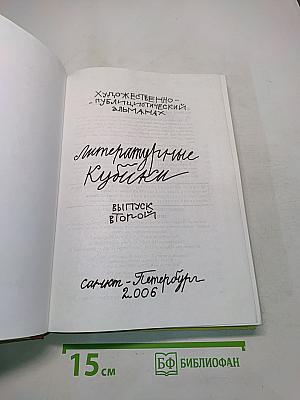 ХУДОЖЕСТВЕННО-
-ПУБЛИЦИСТИЧЕСКИЙ
АЛЬМАНАХ
Литературные
Кубики
ВЫПУСК
ВТОРОЙ
Санкт-Петербург
2006
15 см
БФ БИБЛИОФАН